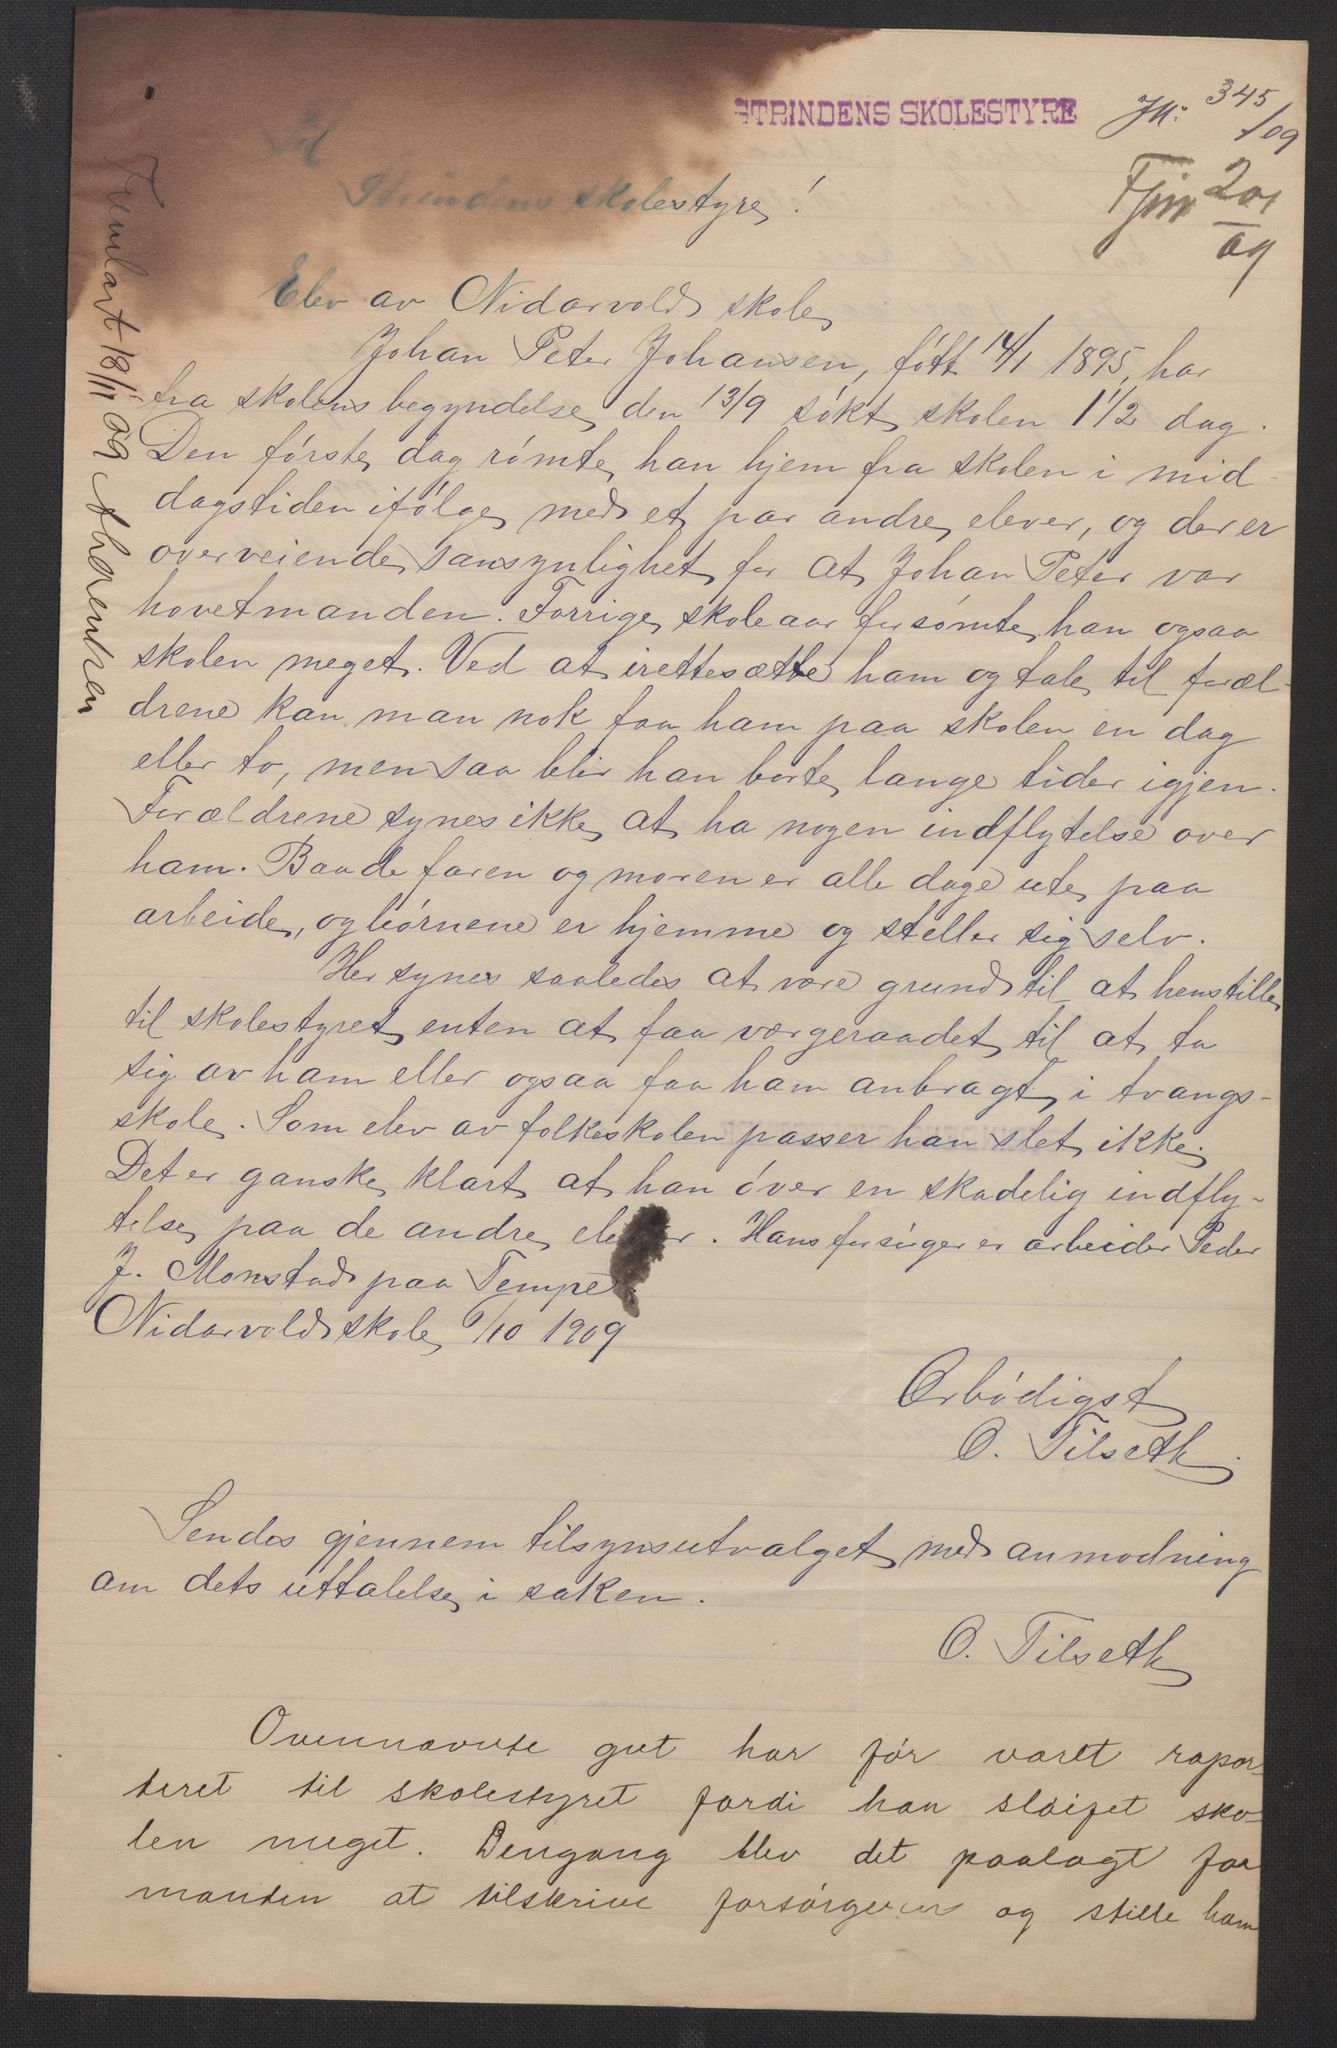 STRINDENS SKOLESTYRE
JN: 345/09
201
09
Til
Strindens skolestyre!
Elev av Nidarvold skole,
Johan Peter Johansen, født 14/1 1895, har
fra skolens begyndelse den 13/9 søkt skolen 1 1/2 dag.
Den første dag rømte han hjem fra skolen i mid-
dagstiden ifølge med et par andre elever, og der er
overveiende sansynlighet for at Johan Peter var
hovetmanden. Forrige skoleaar forsømte han ogsaa
skolen meget. Ved at irettesætte ham og tale til foræl-
drene kan man nok faa ham paa skolen en dag
eller to, men saa blir han borte lange tider igjen.
Forældrene synes ikke at ha nogen indflytelse over
ham. Baade faren og moren er alle dage ute paa
arbeide, og børnene er hjemme og steller sig selv.
Her synes saaledes at være grund til at henstille
til skolestyret enten at faa værgeraadet til at ta
sig av ham eller ogsaa faa ham anbragt i tvangs-
skole. Som elev av folkeskolen passer han slet ikke.
Det er ganske klart at han øver en skadelig indfly-
telse paa de andre elever. Hans forsørger er arbeider Peder
J. Monstad paa Tempe.
Nidarvold skole 6/10 1909
Ærbødigst
O. Tilseth
Sendes gjennem tilsynsutvalget med anmodning
om dets uttalelse i saken.
O. Tilseth
Ovennævnte gut har før været rapor-
teret til skolestyret fordi han sløifet sko-
len meget. Dengang blev det paalagt for
manden at tilskrive forsørgeren og stille ham
Fremlagt 18/11 09